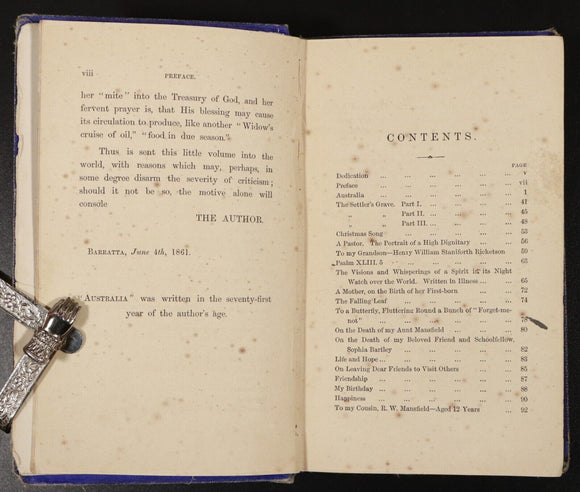 viii PREFACE.
her "mite" into the Treasury of God, and her
fervent prayer is, that His blessing may cause
its circulation to produce, like another "Widow's
cruise of oil," "food in due season."
Thus is sent this little volume into the
world, with reasons which may, perhaps, in
some degree disarm the severity of criticism;
should it not be so, the motive alone will
console
THE AUTHOR.
BARRATTA, June 4th, 1861.
"AUSTRALIA" was written in the seventy-first
year of the author's age.
CONTENTS.
PAGE
Dedication ... ... ... ... ... ... v
Preface ... ... ... ... ... ... vii
Australia ... ... ... ... ... ... 1
The Settler's Grave. Part I. ... ... ... ... 41
" " Part II. ... ... ... ... 45
" " Part III. ... ... ... ... 48
Christmas Song ... ... ... ... ... 53
A Pastor. The Portrait of a High Dignitary ... ... 56
To my Grandson—Henry William Staniforth Ricketson 59
Psalm XLIII. 5 ... ... ... ... ... 63
The Visions and Whisperings of a Spirit in its Night
Watch over the World. Written in Illness ... ... 65
A Mother, on the Birth of her First-born ... ... 72
The Falling Leaf ... ... ... ... ... 74
To a Butterfly, Fluttering Round a Bunch of "Forget-me-
not" ... ... ... ... ... ... 78
On the Death of my Aunt Mansfield ... ... ... 80
On the Death of my Beloved Friend and Schoolfellow,
Sophia Bartley ... ... ... ... ... 82
Life and Hope ... ... ... ... ... ... 83
On Leaving Dear Friends to Visit Others ... ... 85
Friendship ... ... ... ... ... ... 87
My Birthday ... ... ... ... ... ... 88
Happiness ... ... ... ... ... ... 90
To my Cousin, R. W. Mansfield—Aged 12 Years ... 92